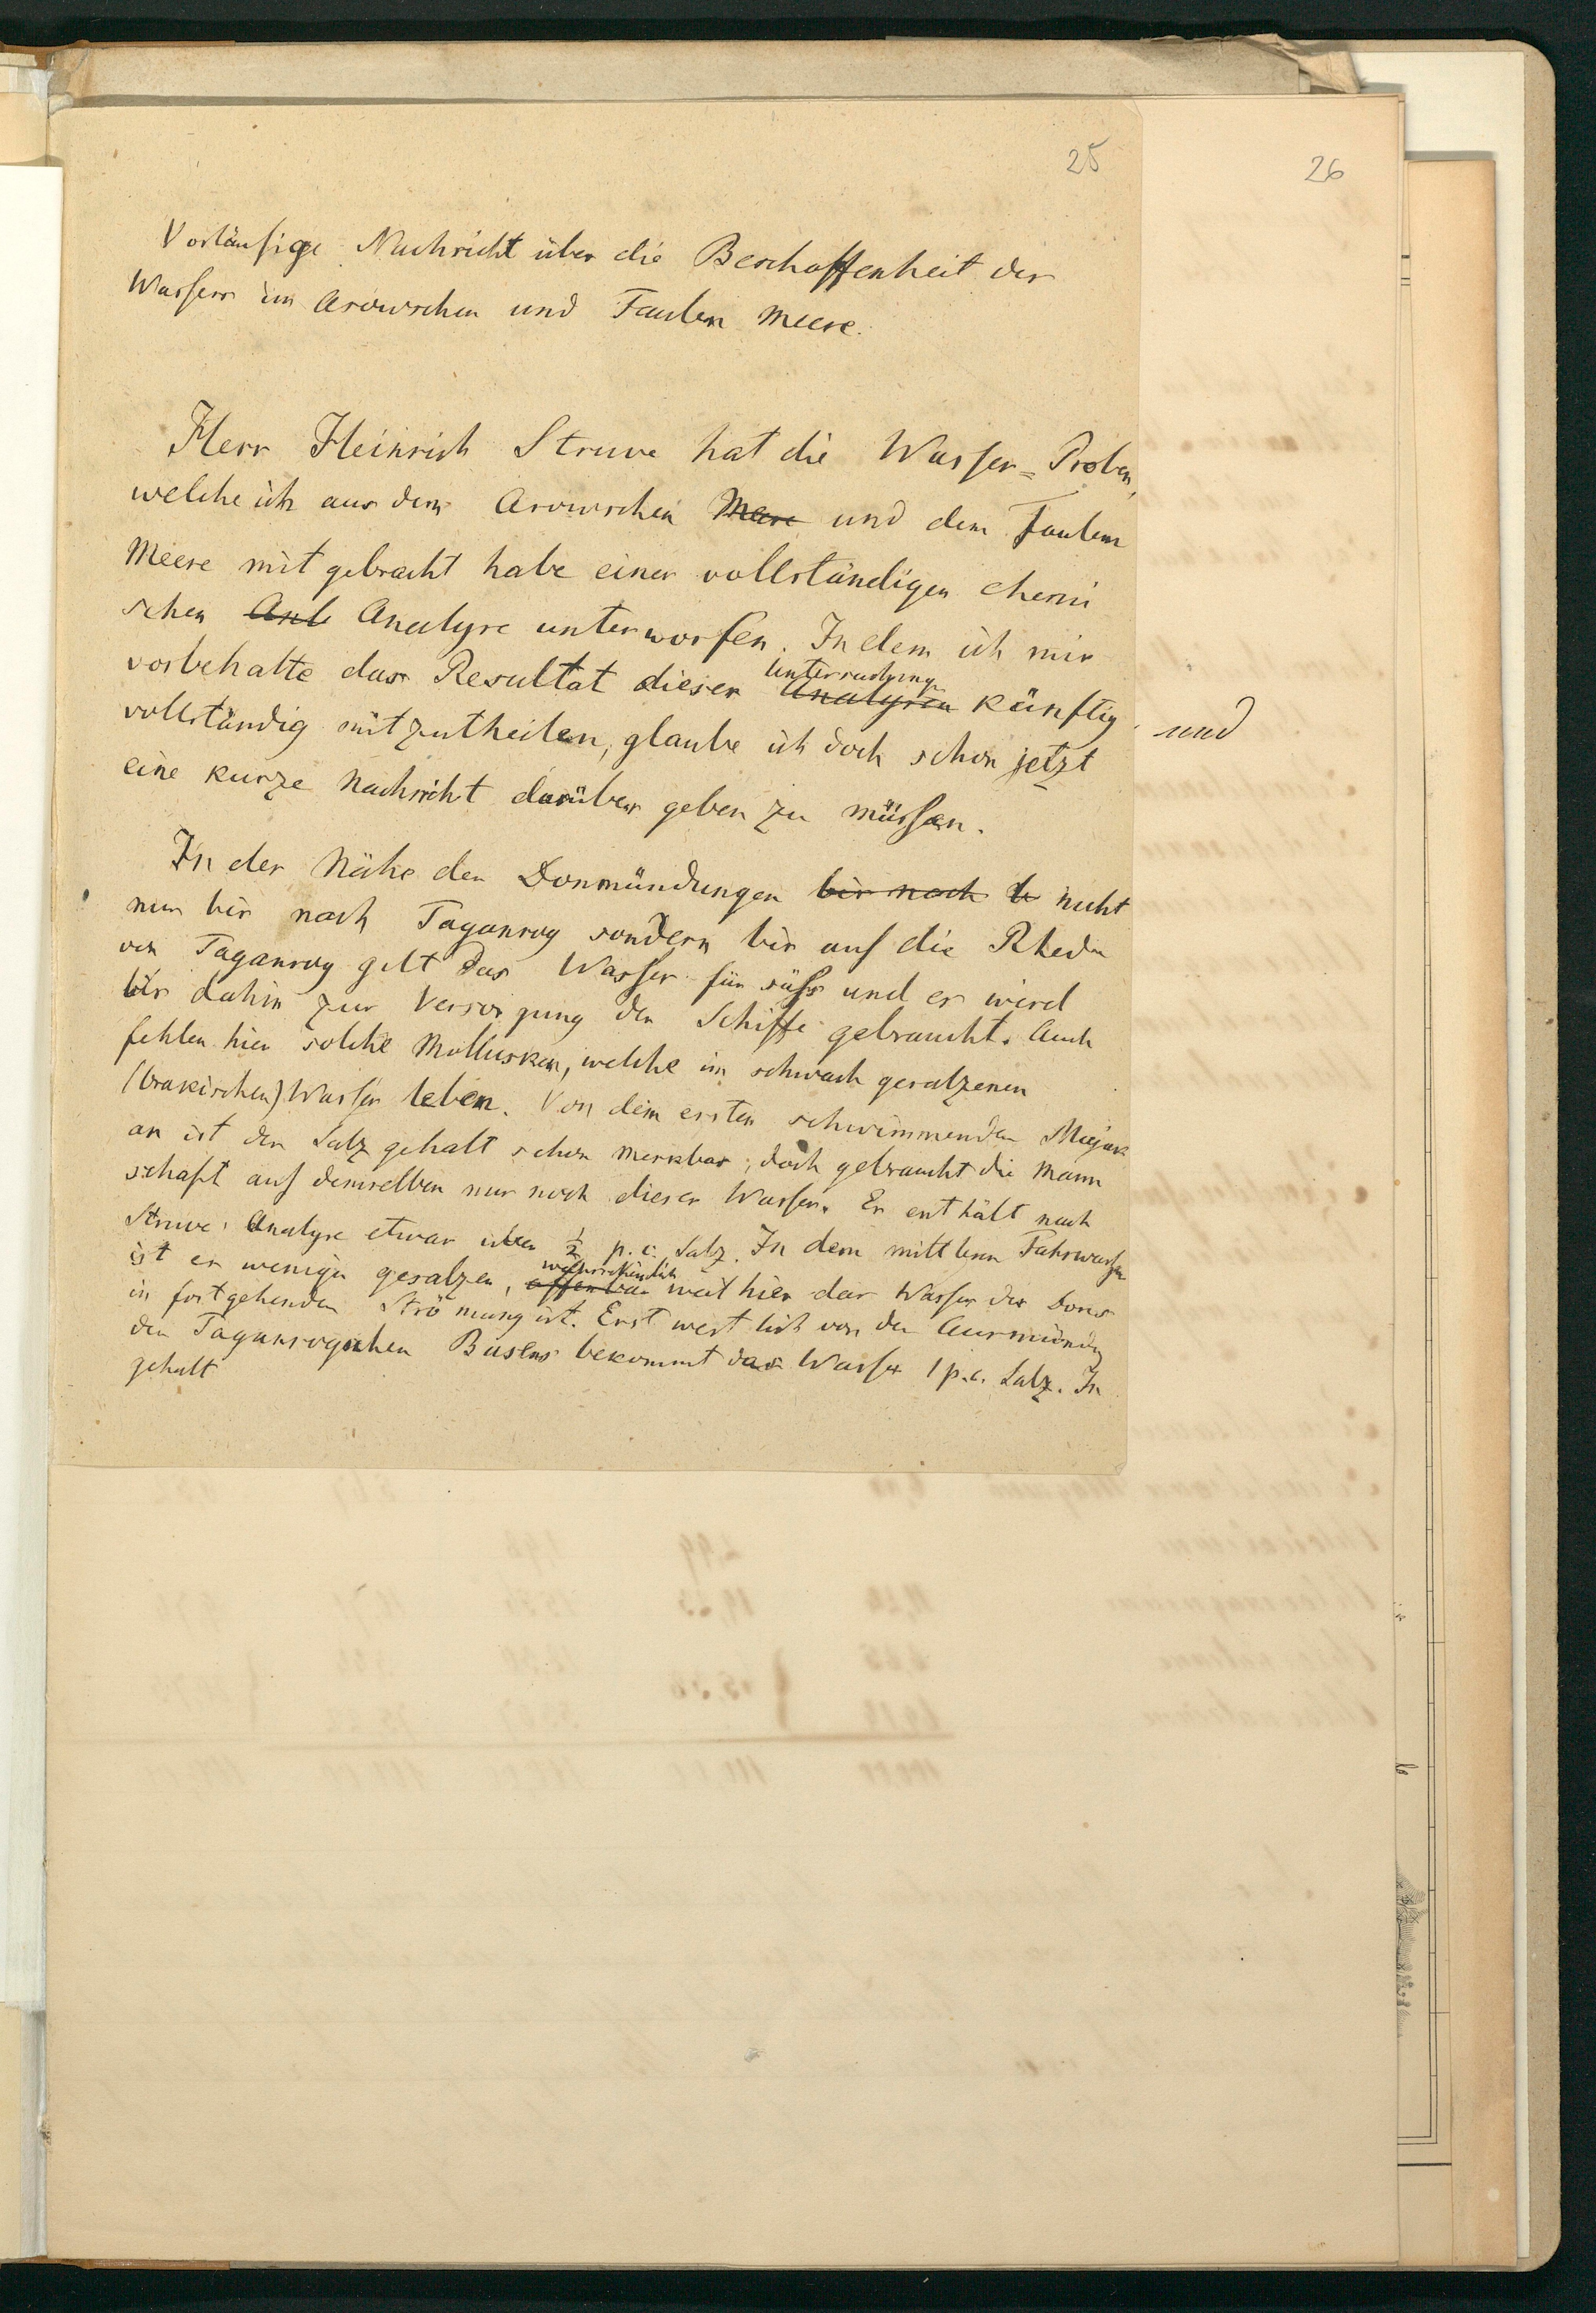 25
26
Vorläufige Nachricht über die Beschaffenheit des
Wassers im Asowschen und Faulen Meere.
Herr Heinrich Struve hat die Wasser=Proben,
welche ich aus dem Asowschen Meere und dem Faulen
Meere mit gebracht habe einer vollständigen chemi
schen Anl Analyse unterworfen. Indem ich mir
vorbehalte das Resultat dieser Untersuchung Analysen künftig
und
vollständig mitzutheilen, glaube ich doch schon jetzt
eine kurze Nachricht darüber geben zu müssen.
In der Nähe der Donmündungen bis nach b nicht
nur bis nach Taganrog sondern bis auf die Rheden
von Taganrog gilt das Wasser für süss und es wird
bis dahin zur Versorgung der Schiffe gebraucht. Auch
fehlen hier solche Mollusken, welche im schwach gesalzenen
(brakischen) Wasser leben. Von dem ersten schwimmenden Majak
an ist der Salzgehalt schon merkbar, doch gebraucht die Mann
schaft auf demselben nur noch dieses Wasser. Es enthält nach
Struve's Analyse etwas über ½ p.c. Salz. In dem mittlern Fahrwasser
ist es weniger gesalzen, wahrscheinlich offenbar weil hier das Wasser des Dons
in fortgehender Strömung ist. Erst westlich von der Ausmündung
des Taganrogschen Busens bekommt das Wasser 1 p.c. Salz. In
gehalt